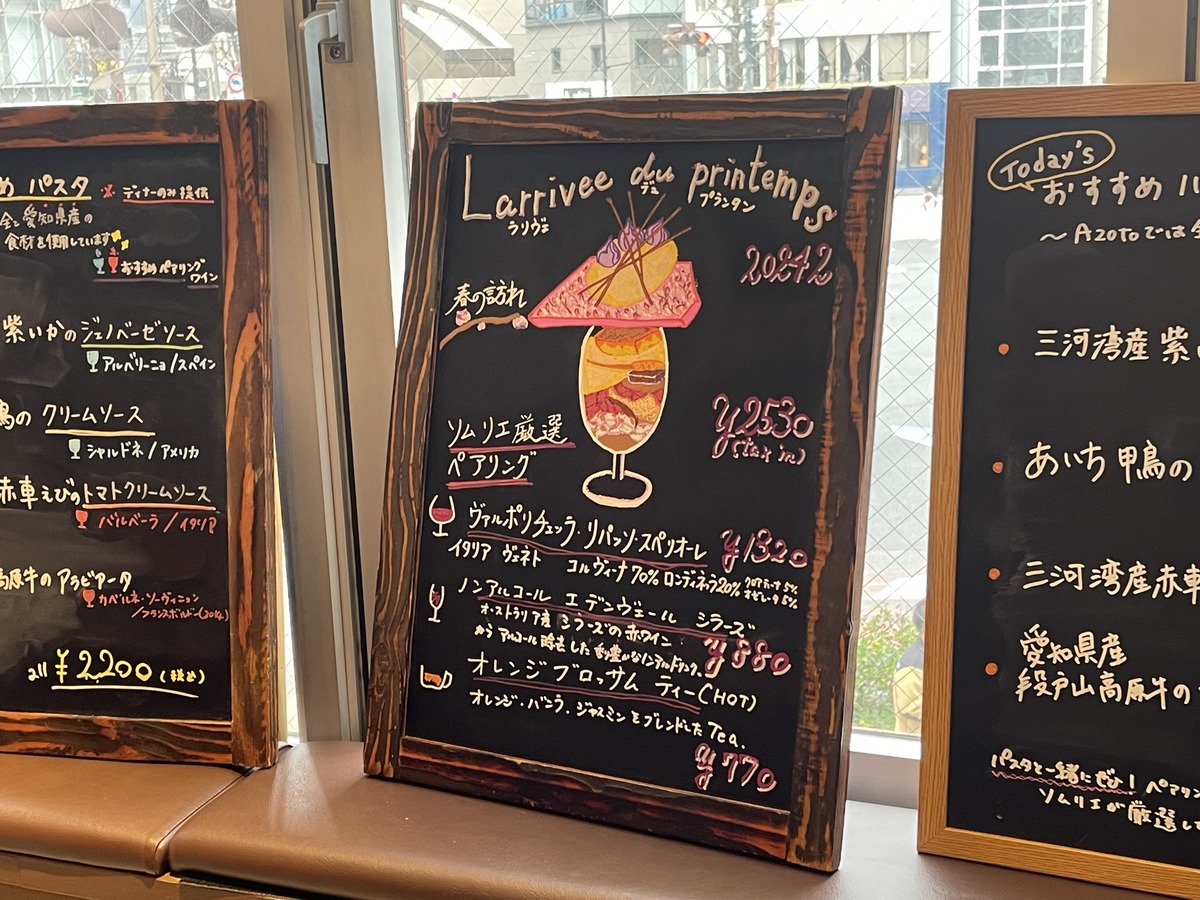 め パスタ ※ ディナーのみ提供
全て愛知県産の
食材を使用しています
おすすめペアリング
ワイン
紫いかのジェノベーゼソース
アルバリーニョ/スペイン
鴨の クリームソース
シャルドネ/アメリカ
赤車えびのトマトクリームソース
バルベーラ/イタリア
高原牛のアラビアータ
カベルネ・ソーヴィニョン
/フランスボルドー(2014)
all ¥2,200(税込)
Larrivee du printemps
ラリヴェ デュ プランタン
2024.2
春の訪れ
¥2530
(tax in)
ソムリエ厳選
ペアリング
ヴァルポリチェッラ・リパッソ・スペリオーレ ¥1320
イタリア ヴェネト コルヴィーナ70% ロンディネッラ20%
ノンアルコール エデンヴェール シラーズ
オーストラリア産 シラーズの赤ワイン
からアルコール除去した香り豊かなノンアルドリンク。 ¥880
オレンジ ブロッサム ティー(HOT)
オレンジ・バニラ・ジャスミンをブレンドしたTea.
¥770
Today's
おすすめ パ
〜Azotoでは全
三河湾産 紫い
あいち鴨の
三河湾産赤車
愛知県産
段戸山高原牛の
パスタと一緒にぜひ! ペアリン
ソムリエが厳選し